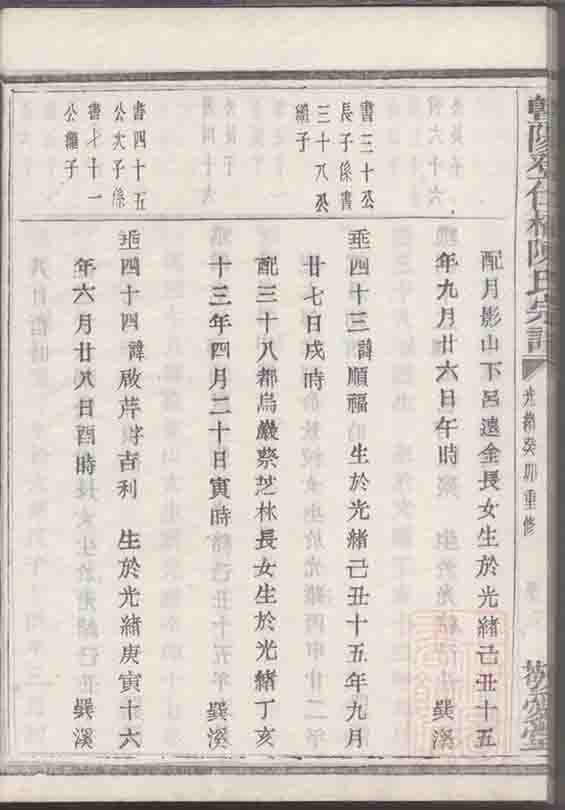 陳氏宗譜
光緒癸卯重修
配月影山下呂遠金長女生於光緒己丑十五
年九月廿六日午時
巽溪
書三十公
長子係書
三十八公
繼子
垂四十三諱順福
生於光緒己丑十五年九月
廿七日戌時
配三十八都烏巖蔡芝林長女生於光緒丁亥
十三年四月二十日寅時
巽溪
書四十五
公次子係
書七十一
公繼子
垂四十四諱啟芹字吉利
生於光緒庚寅十六
年六月廿八日酉時
巽溪